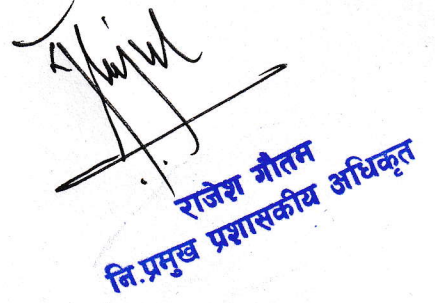 राजेश गौतम
नि.प्रमुख प्रशासकीय अधिकृत